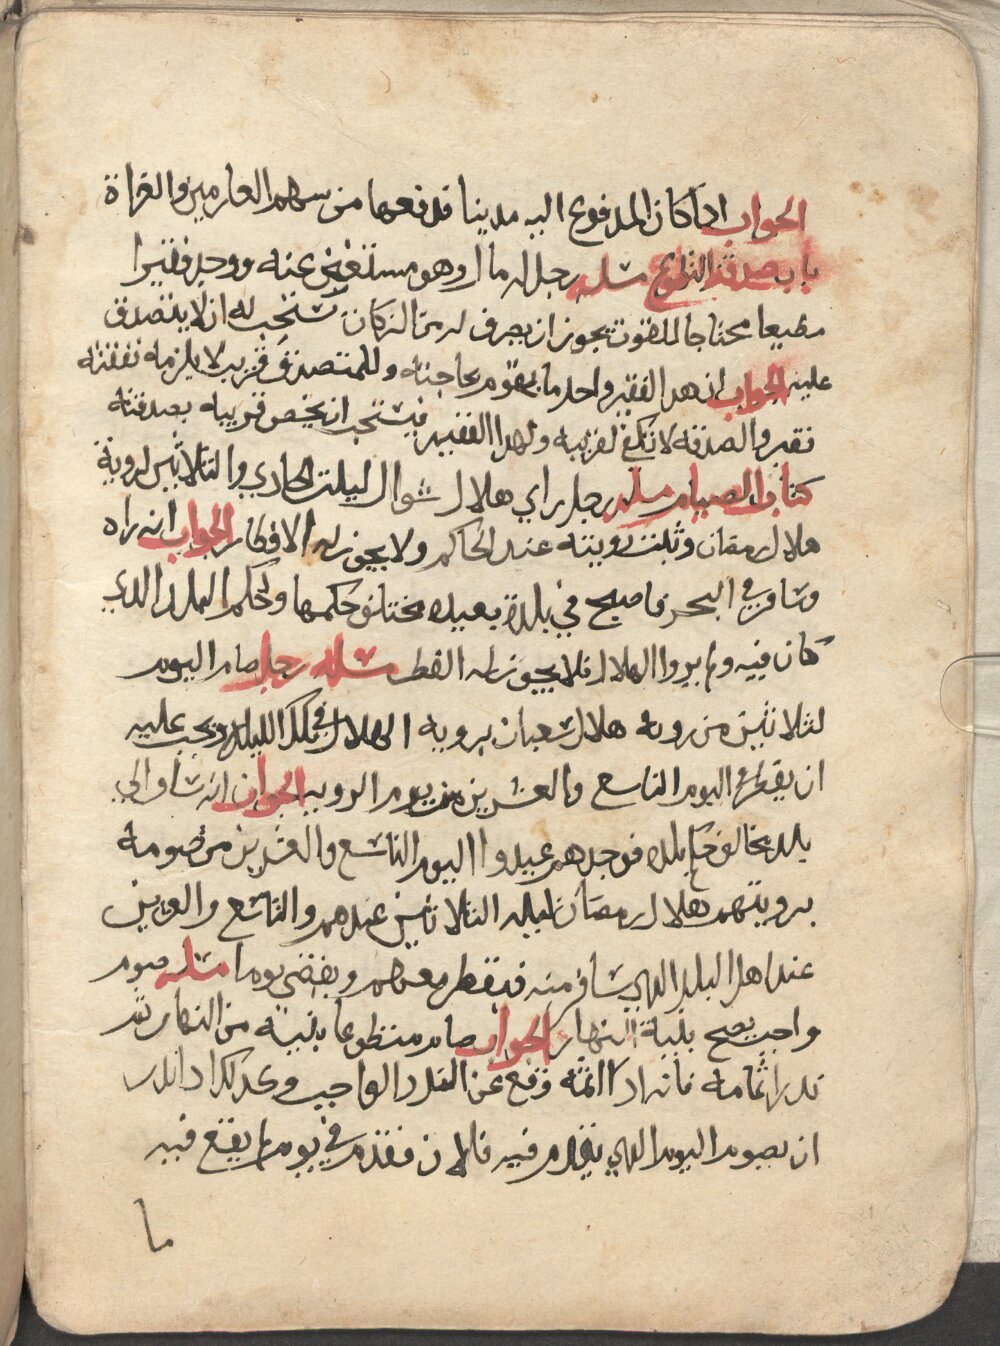 الجواب اذا كان المدفوع اليه مدينا فدفعها من سهم الغارمين والغزاة
باب صدقة التطوع مسله رجل له مال وهو مستغني عنه ووجد فقيرا
مطيعا محتاجا للقوت يجوز ان يصرف له من الزكاة يستحب له ان لا يتصدق
عليه الجواب ان هدا الفقير واجد ما يقوم بحاجته وللمتصدق قريب لا يلزمه نفقته
فقير والصدقه لا تكفي لقريبه ولهدا الفقير فيستحب ان يخص قريبه بصدقته
كتاب الصيام مسله رجل راي هلال شوال ليلة الحادي والثلاثين لروية
هلال رمضان وثبتت رويته عند الحاكم ولا يجوز له الافطار الجواب انه راه
وسافر في البحر فاصبح في بلدة بعيده مختلف حكمها وحكم البلد الدي
كان فيه ولم يروا الهلال فلا يجوز له الفطر مسله رجل صام اليوم
لثلاثين من رويه هلال شعبان برويه الهلال في تلك الليله ويجب عليه
ان يفطر في اليوم التاسع والعشرين من يوم الرويه الجواب انه سافر الي
بلد يخالف حكم بلده فوجدهم عيدوا اليوم التاسع والعشرين من صومه
برويتهم هلال رمضان ليله الثلاثين عندهم والتاسع والعشرين
عند اهل البلد الدي سافر منه فيفطر معهم ويقضي يوما مسله صوم
واجب يصح بنية النهار الجواب صام متطوعا بنية من النهار ثم
ندر اتمامه فانه ادا اتمه وقع عن الندر الواجب وكدلك ادا ندر
ان يصوم اليوم الدي يقدم فيه فلان فقدم في يوم لم يقع فيه
ما